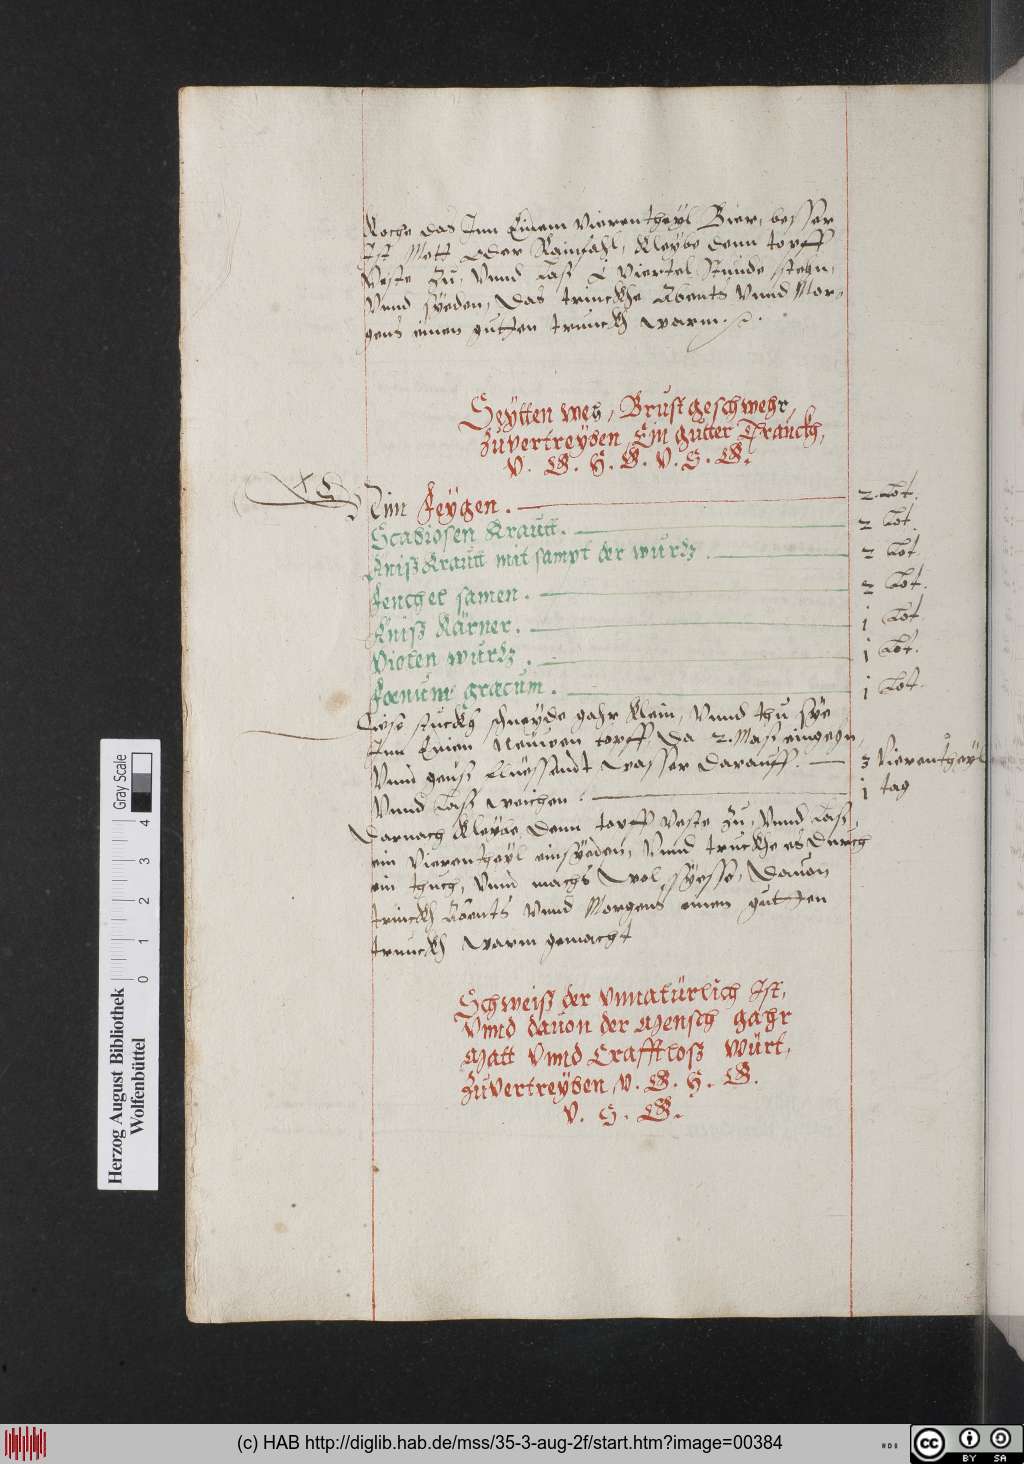 Koche das Inn Einem Vierentheyl Bier, besser
Ist Mett Oder Rainfahl, Kleybe denn topff
Veste Zu, Vnnd Lass Viertel Stunde stehn,
Vnnd syeden, Das trinckhe Abents Vnnd Mor-
gens einen gutten trunckh warm.
Seytten weh, Brust geschwehr,
Zuvertreyben Ein gutter Tranckh,
V. G. H. G. V. S. G.
Nim Feygen. 2. Lot.
Scabiosen Krautt. 2 Lot.
Aniß Krautt mit sampt der wurtz. 2 Lot
Fenchel samen. 2 Lot.
Aniß Kärner. 1 Lot
Violen wurtz. 1 Lot.
Foenum gracum. 1 Lot.
Diese stuckh schneyde gahr klein, Vnnd thu sye
Inn Einen Neuwen topff, Da 2. Mass eingehn,
Vnnd geuss fluessendt Wasser Darauff. 3 Vierentheyl
Vnnd Lass weichen. 1 tag
Darnach Kleybe Denn topff Veste Zu, Vnnd Lass,
ein Vierentheyl einsyeden, Vnnd truckhe es Durch
ein thuch, Vnnd machs Wol syesse, Dauon
trinckh Abents Vnnd Morgens einen gutten
trunckh Warm gemacht
Schweiß der Vnnatürlich Ist,
Vnnd dauon der Mensch gahr
Matt Vnnd Crafftloß Würt,
Zuvertreyben, V. G. H. G.
V. S. G.
Herzog August Bibliothek
Wolfenbüttel
0 1 2 3 4
Gray Scale
(c) HAB http://diglib.hab.de/mss/35-3-aug-2f/start.htm?image=00384
cc BY SA